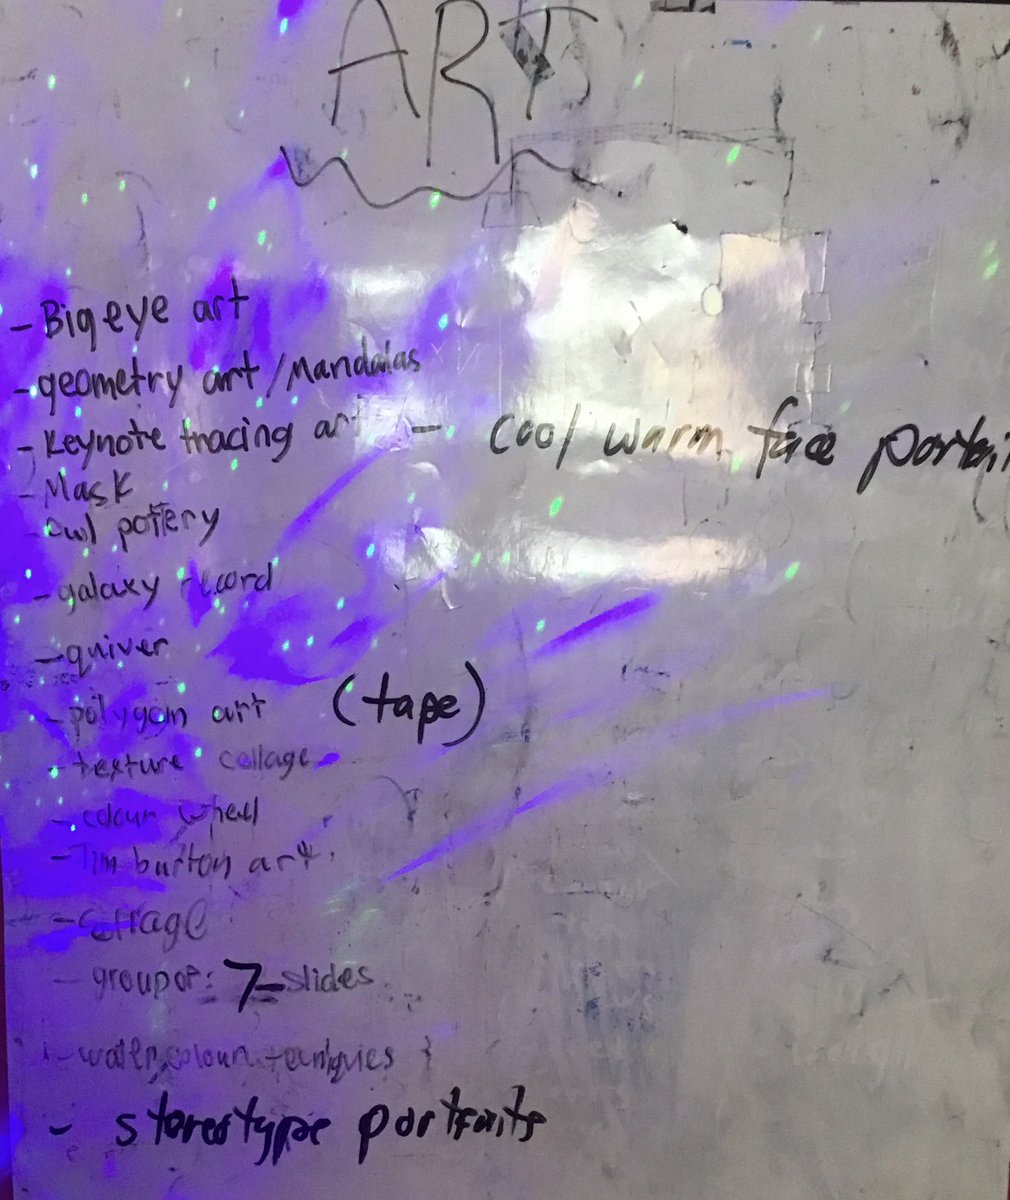 ART
- Big eye art
- geometry art / Mandalas
- Keynote tracing art - cool warm face portrai
- Mask
- owl pottery
- galaxy record
- quiver
- polygon art (tape)
- texture collage
- colour wheel
- Tim burton art.
- Collage
- group of: 7 - slides
- water colour techniques
- storestype portraits